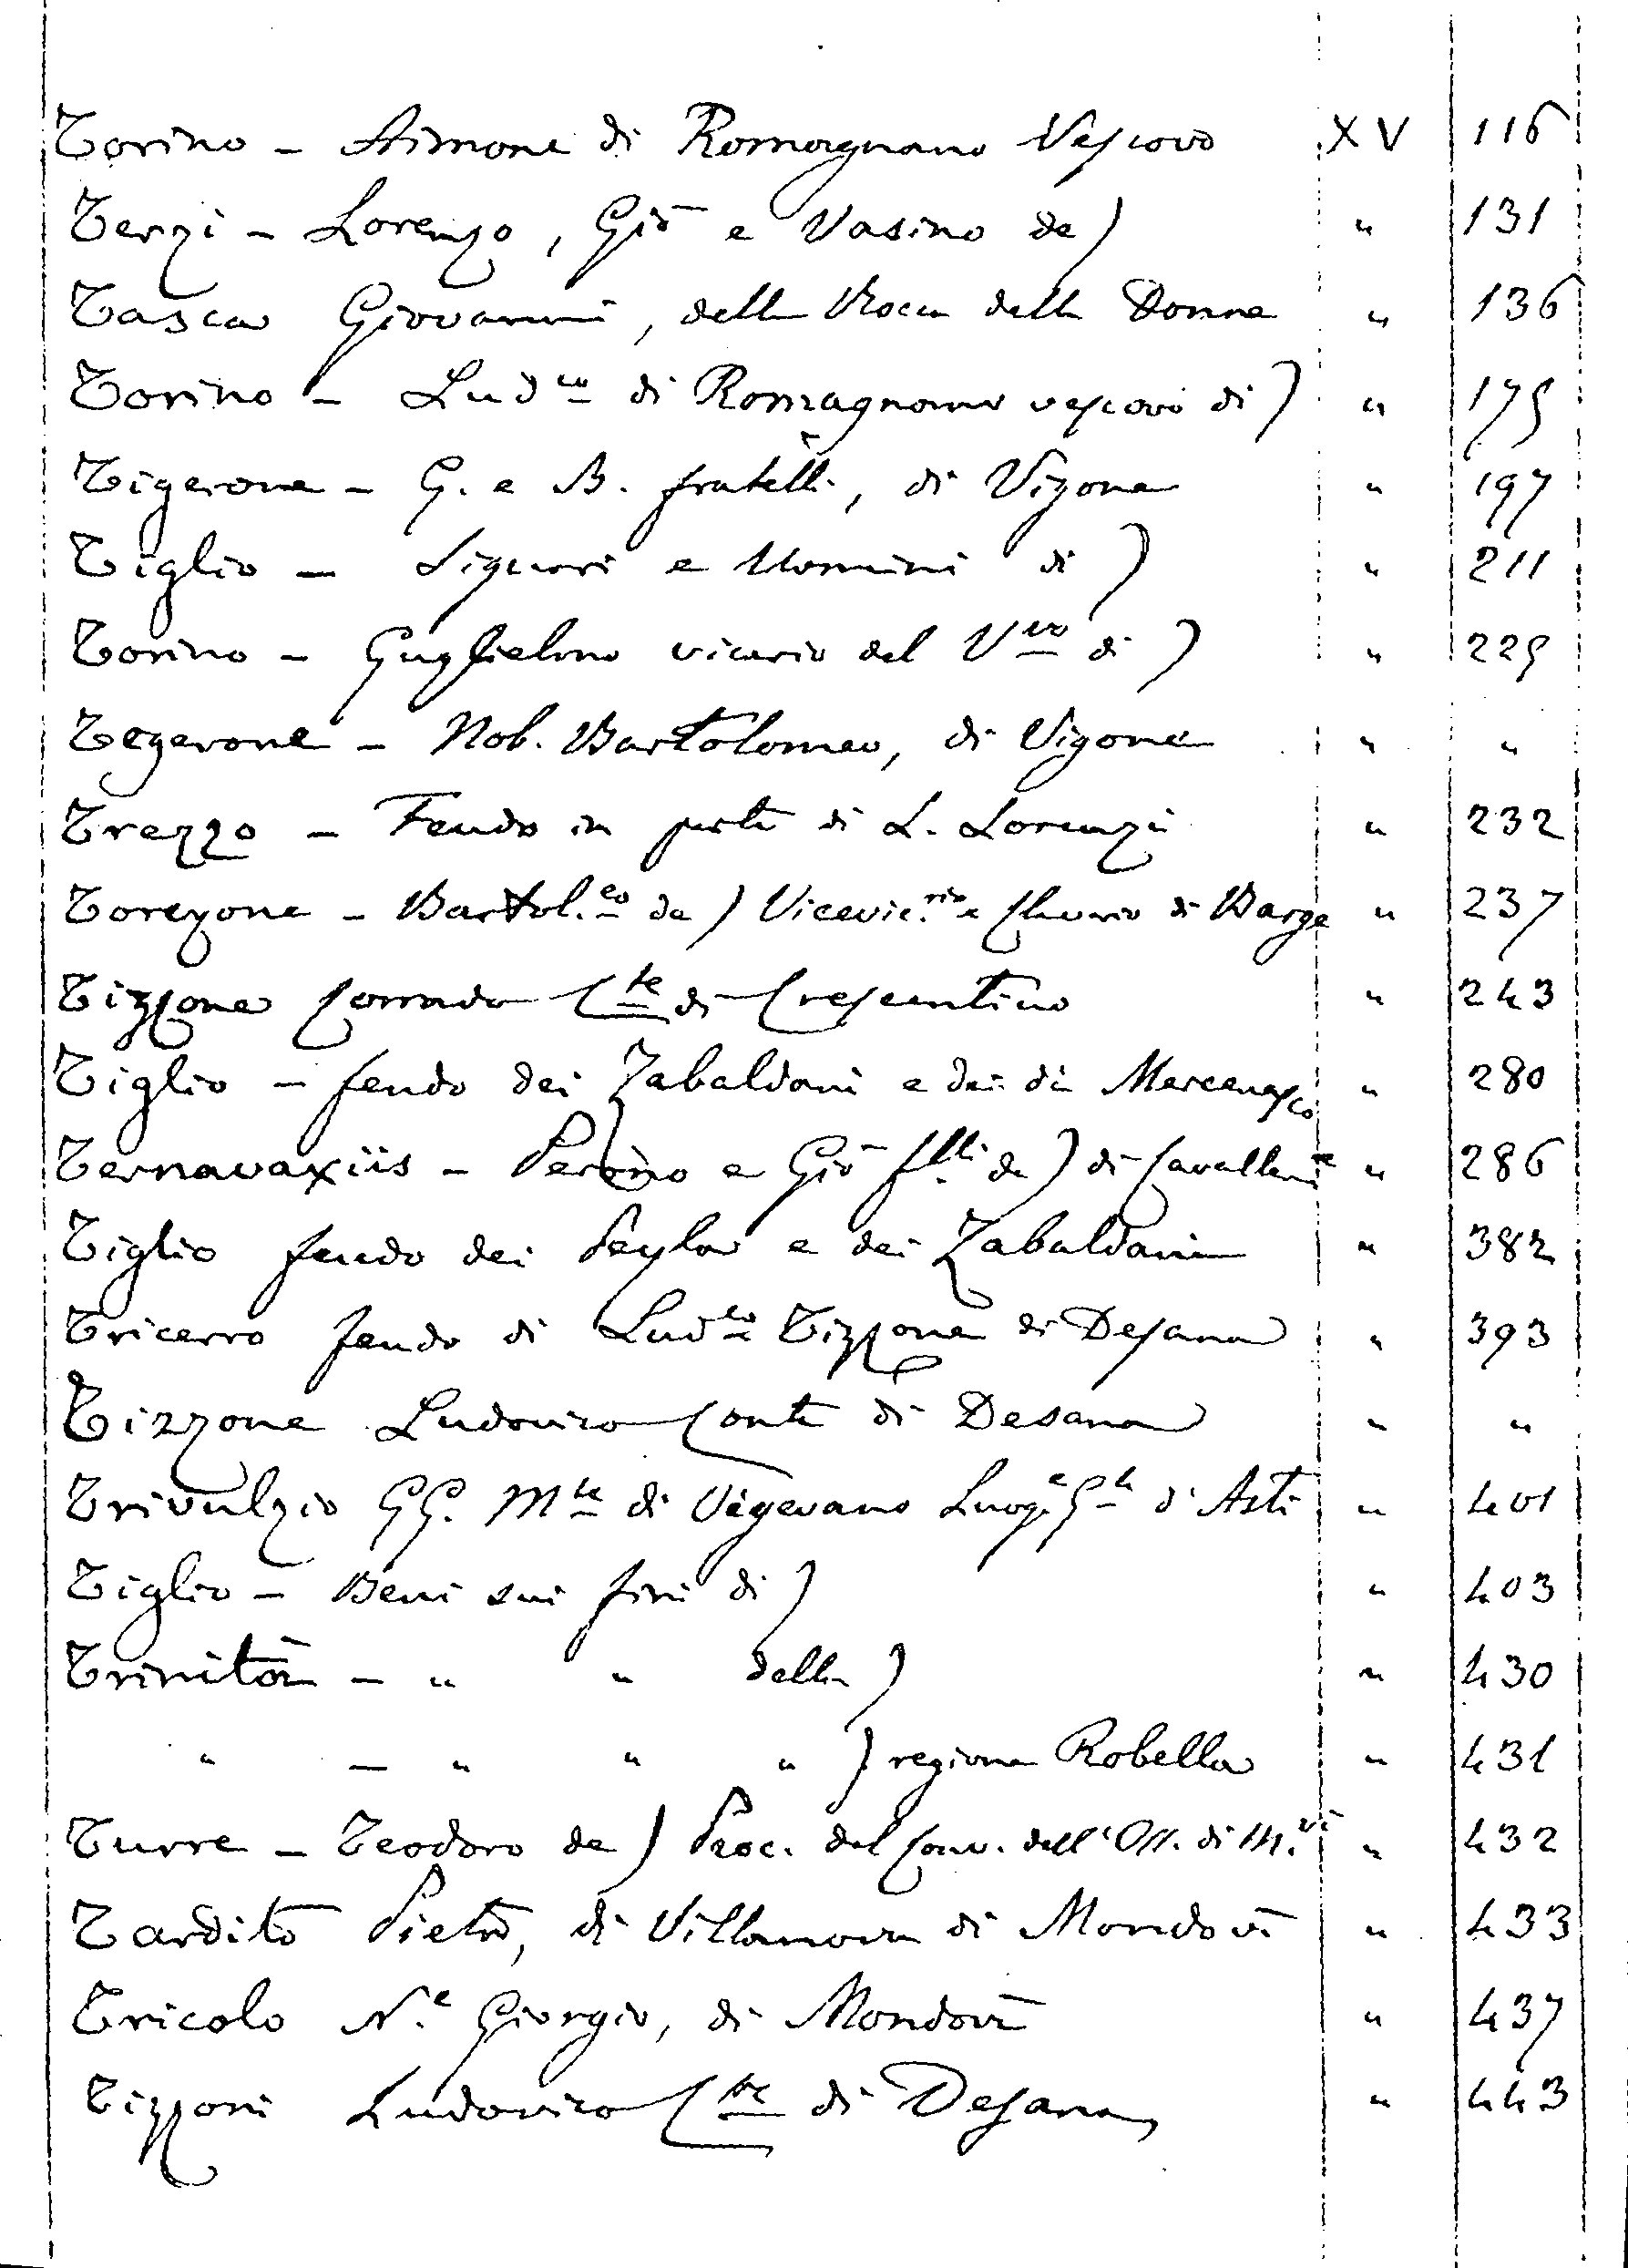 Torino - Aimone di Romagnano Vescovo XV 116
Terzi - Lorenzo, Giō e Vasino de) " 131
Tasca Giovanni, della Rocca delle Donne " 136
Torino - Lud.co di Romagnano vescovo di) " 175
Tigerone - G. e B. fratelli, di Vigone " 197
Tiglio - Signori e Uomini di) " 211
Torino - Guglielmo vicario del V.vo di) " 225
Tegerone - Nob. Bartolomeo, di Vigone " "
Trezzo - Feudo in parte di L. Lorenzi " 232
Toreyone - Bartol.eo de) Vicevic.rio e Clavario di Barge " 237
Tizzone Corrado C.te di Crescentino " 243
Tiglio - feudo dei Zabaldani e dei di Mercenasco " 280
Ternavaxiis - Perino e Giō f.lli de) di Cavallerm.e " 286
Tiglio feudo dei Peyla e dei Zabaldani " 382
Tricerro feudo di Lud.co Tizzone di Desana " 393
Tizzone Ludovico Conte di Desana " "
Trivulzio GG. M.se di Vigevano Luog.e G.le d'Asti " 401
Tiglio - Beni sui fini di) " 403
Trinità - " " della) " 430
" - " " ") regione Robella " 431
Turre - Teodoro de) Proc. del Conv. dell'Oss. di M.vi " 432
Tardito Pietro, di Villanova di Mondovì " 433
Tricolo N.e Giorgio, di Mondovì " 437
Tizzoni Ludovico C.te di Desana " 443